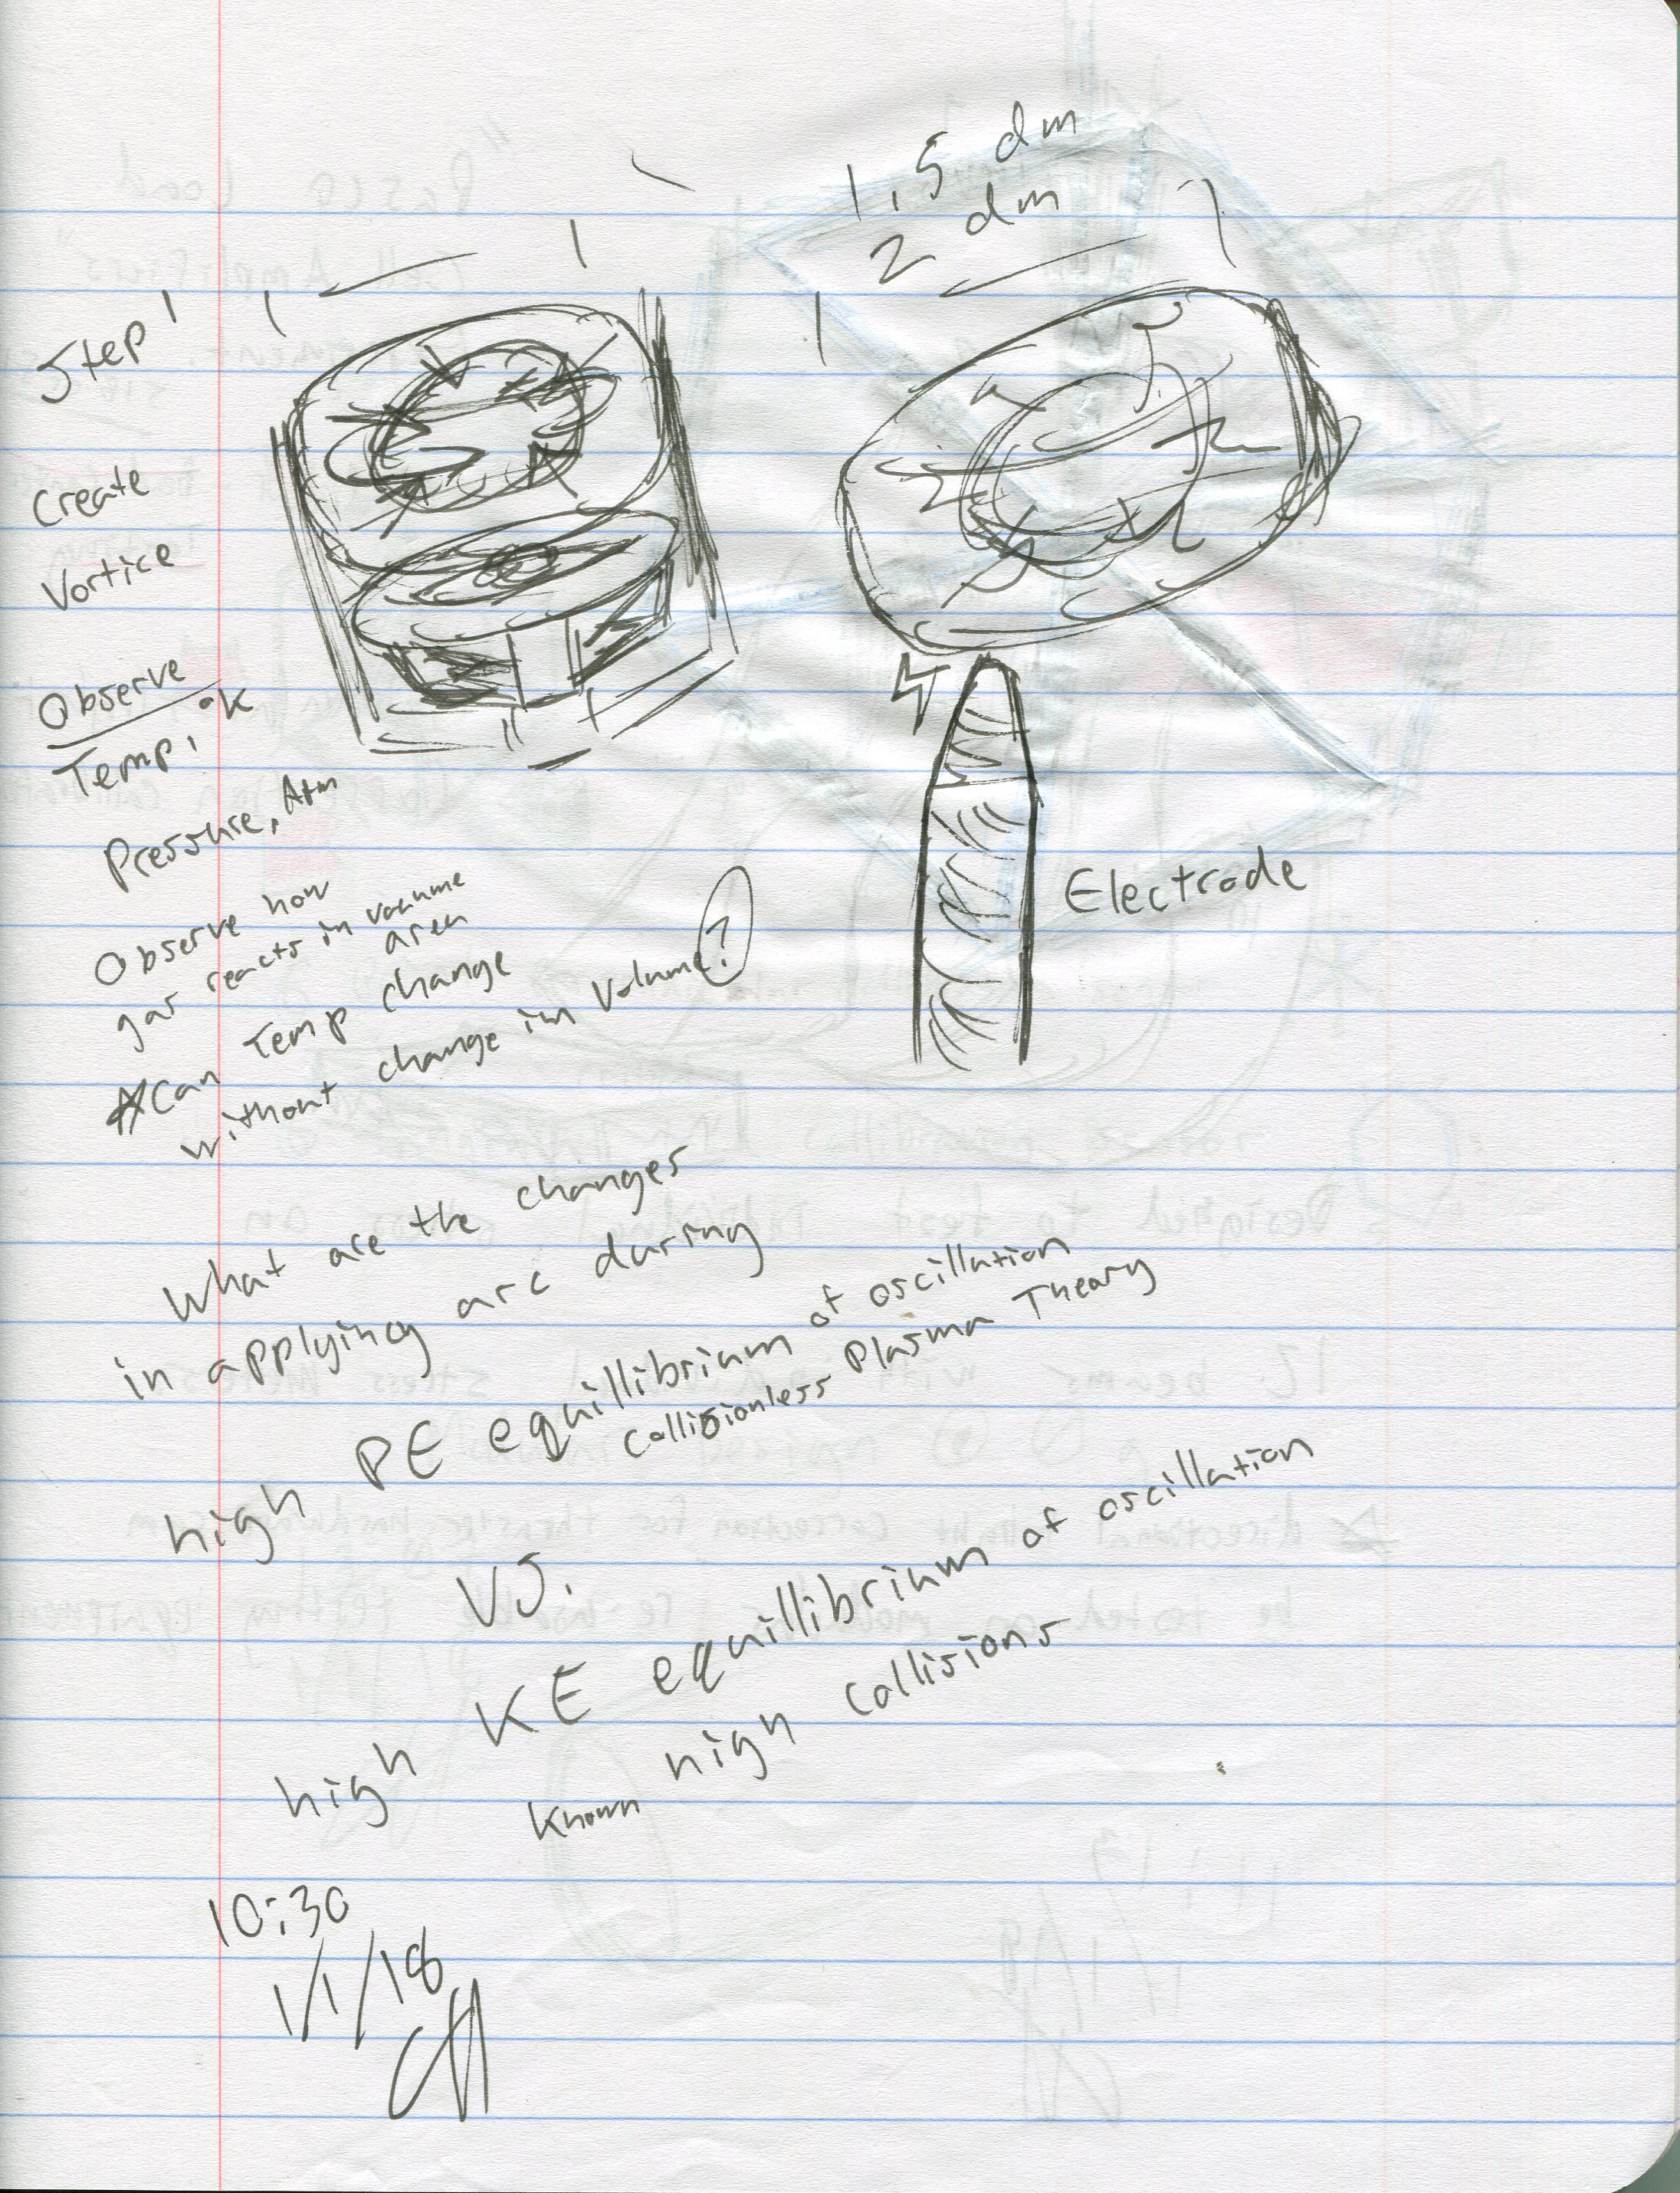 1,5 dm
2 dm
Step 1
Create
Vortice
Observe
Temp, °K
Pressure, Atm
Observe how
gas reacts in
area
*Can Temp change
without change in Volume?
Electrode
What are the changes
in applying arc during
high PE equillibrium of oscillation
Collisionless Plasma Theory
VS.
high KE equillibrium of oscillation
Known high Collisions
10:30
1/1/18